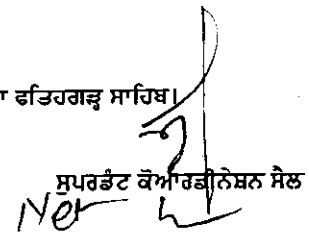 ਫਤਿਹਗੜ੍ਹ ਸਾਹਿਬ।
ਸੁਪਰਡੰਟ ਕੋਆਰਡੀਨੇਸ਼ਨ ਸੈਲ